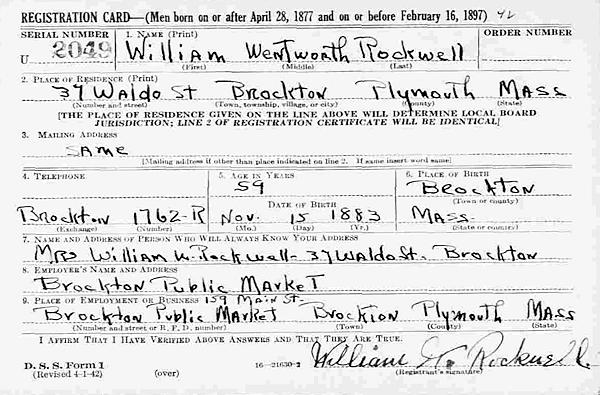 REGISTRATION CARD—(Men born on or after April 28, 1877 and on or before February 16, 1897) 42
SERIAL NUMBER 1. NAME (Print) ORDER NUMBER
U 2049 William Wentworth Rockwell
(First) (Middle) (Last)
2. PLACE OF RESIDENCE (Print)
37 Waldo St Brockton Plymouth Mass
(Number and street) (Town, township, village, or city) (County) (State)
[THE PLACE OF RESIDENCE GIVEN ON THE LINE ABOVE WILL DETERMINE LOCAL BOARD
JURISDICTION; LINE 2 OF REGISTRATION CERTIFICATE WILL BE IDENTICAL]
3. MAILING ADDRESS
SAME
[Mailing address if other than place indicated on line 2. If same insert word same]
4. TELEPHONE 5. AGE IN YEARS 6. PLACE OF BIRTH
59 Brockton
DATE OF BIRTH (Town or county)
Brockton 1762-R Nov. 15 1883 Mass.
(Exchange) (Number) (Mo.) (Day) (Yr.) (State or country)
7. NAME AND ADDRESS OF PERSON WHO WILL ALWAYS KNOW YOUR ADDRESS
Mrs William W. Rockwell - 37 Waldo St. Brockton
8. EMPLOYER'S NAME AND ADDRESS
Brockton Public Market
9. PLACE OF EMPLOYMENT OR BUSINESS 159 Main St.
Brockton Public Market Brockton Plymouth Mass
(Number and street or R. F. D. number) (Town) (County) (State)
I AFFIRM THAT I HAVE VERIFIED ABOVE ANSWERS AND THAT THEY ARE TRUE.
D. S. S. Form 1
(Revised 4-1-42) (over) 16—21630-2 William W. Rockwell
(Registrant's signature)